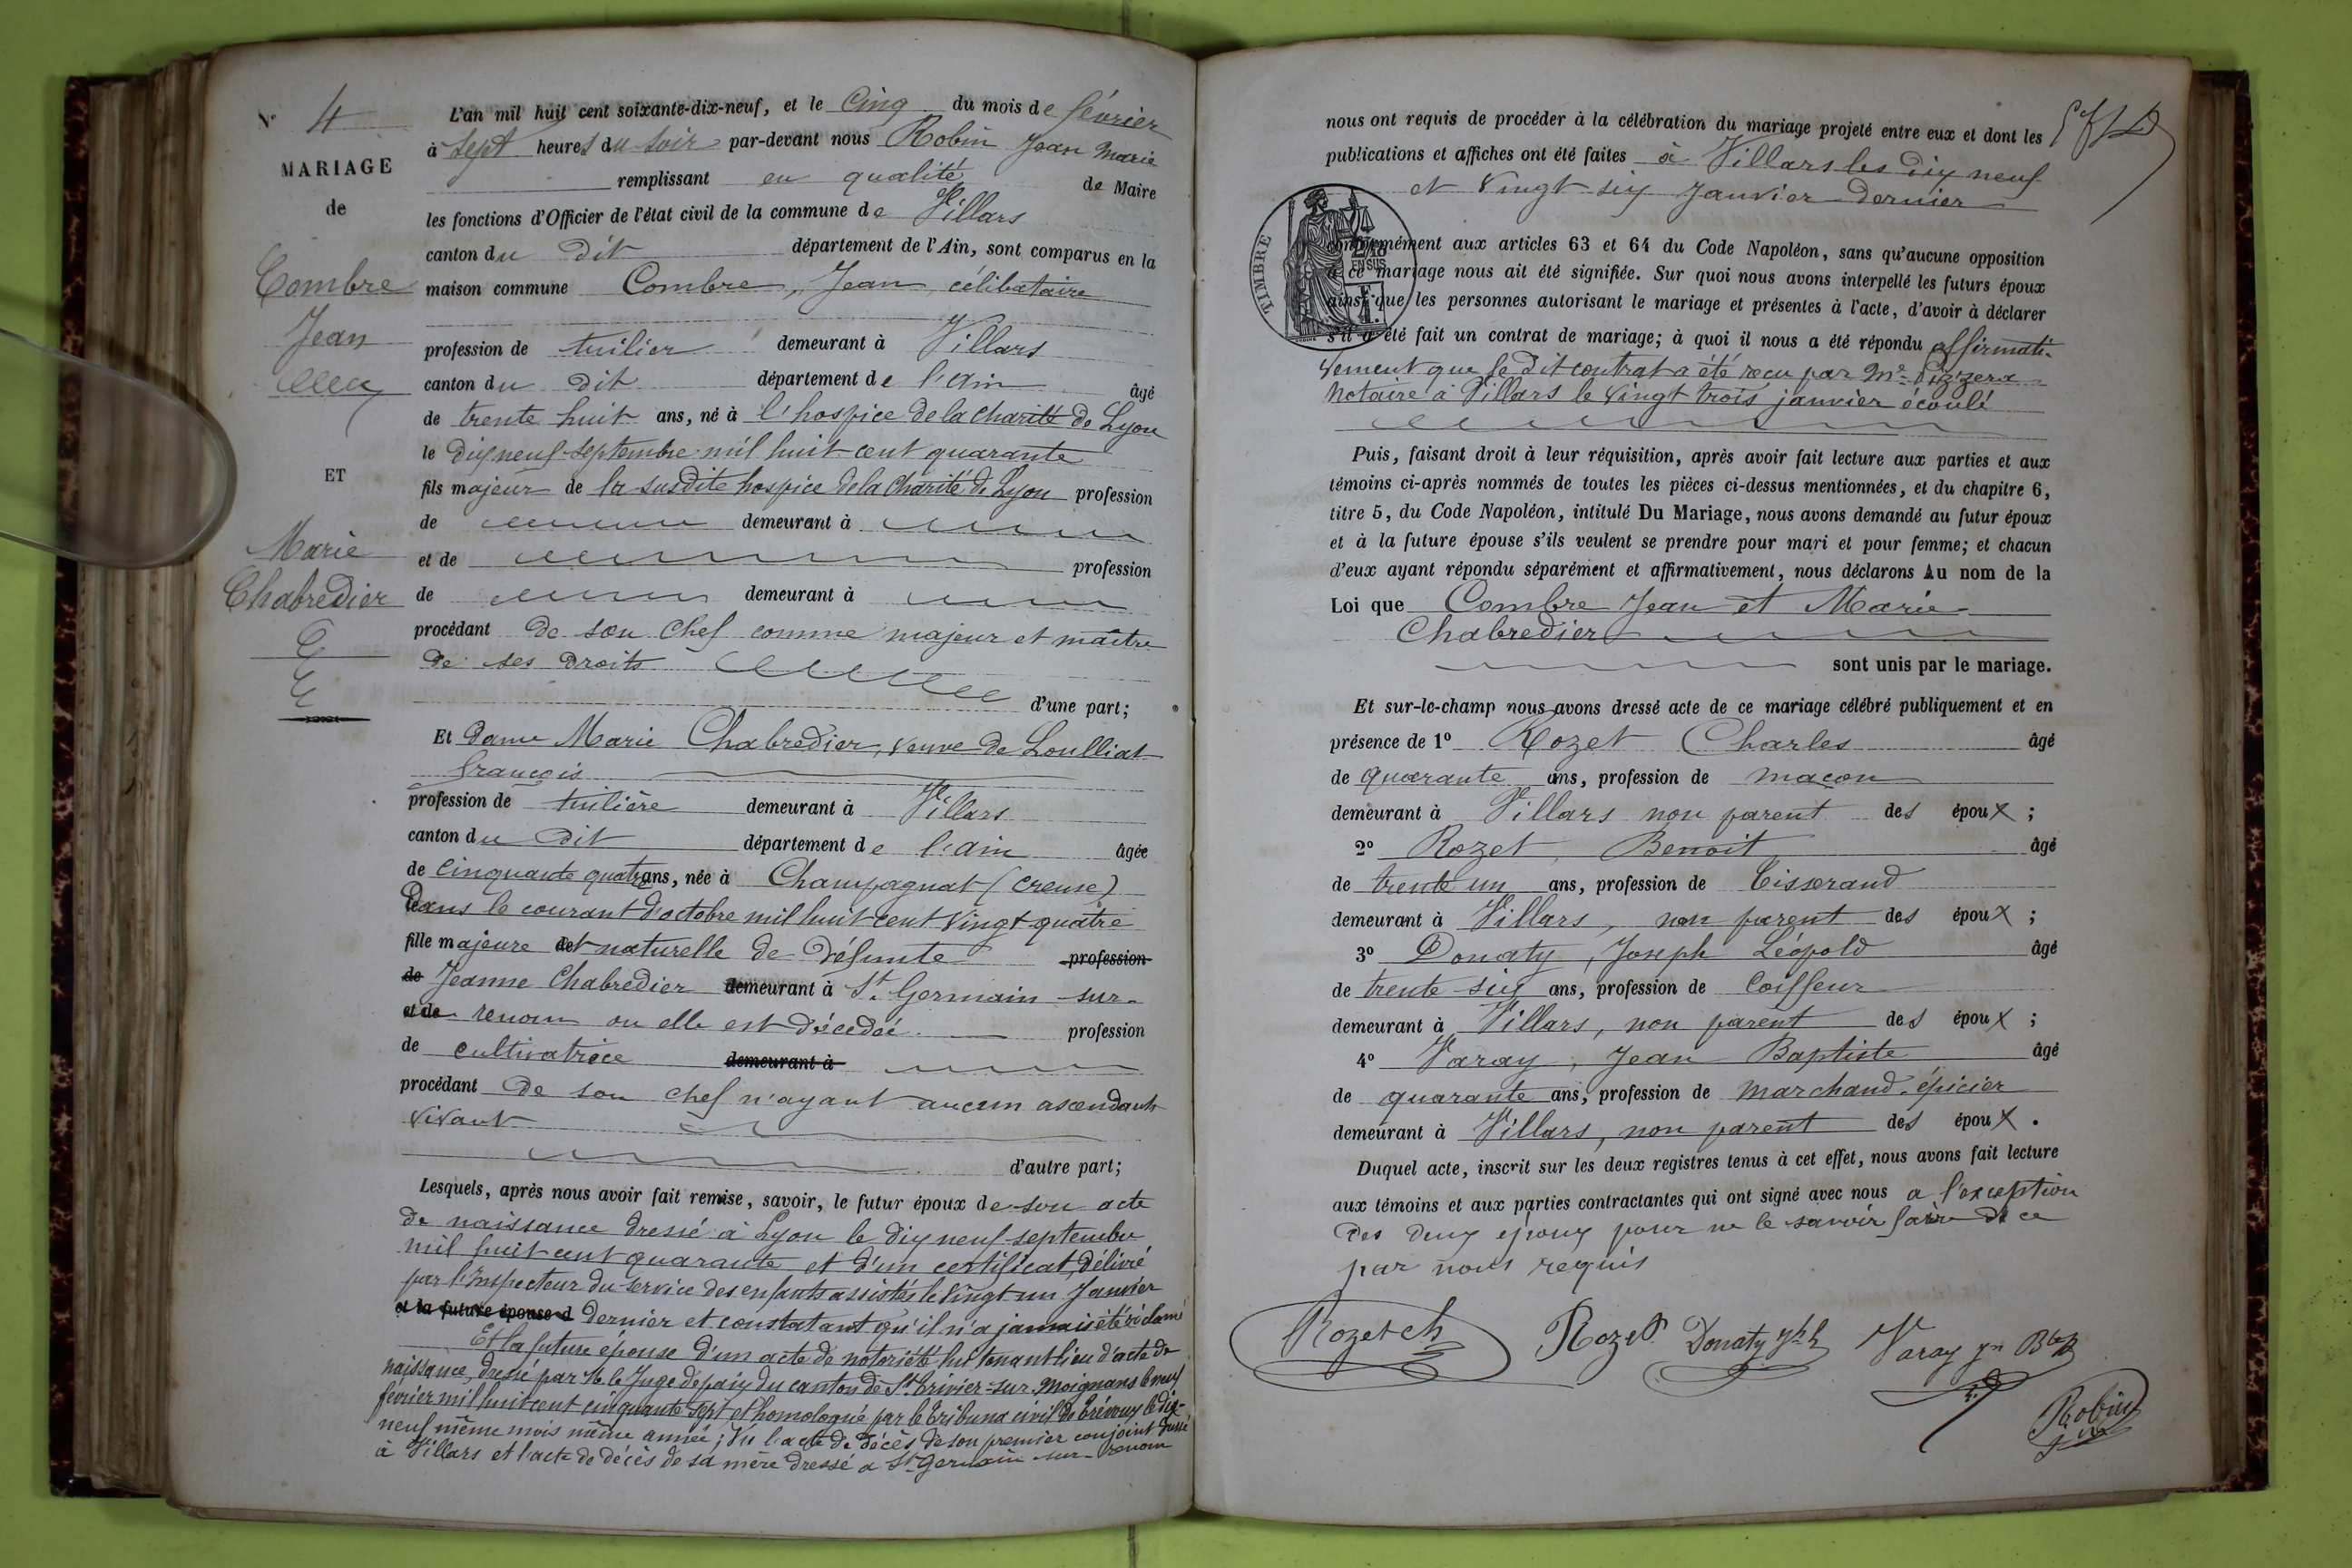 N° 4
MARIAGE
de
Combre
Jean
ET
Marie
Chabredier
L'an mil huit cent soixante-dix-neuf, et le Cinq du mois de février
à sept heures du soir par-devant nous Robin Jean Marie
remplissant en qualité de Maire
les fonctions d'Officier de l'état civil de la commune de Villars
canton du dit département de l'Ain, sont comparus en la
maison commune Combre, Jean, célibataire
profession de tuilier demeurant à Villars
canton du dit département de l'ain âgé
de trente huit ans, né à l'hospice de la charité de Lyon
le dix neuf septembre mil huit cent quarante
fils majeur de la susdite hospice de la charité de Lyon profession
de demeurant à
et de profession
de demeurant à
procédant de son chef comme majeur et maître
de ses droits
d'une part;
Et dame Marie Chabredier, veuve de Loulliat
françois
profession de tuilière demeurant à Villars
canton du dit département de l'ain âgée
de cinquante quatre ans, née à Champagnat (creuse)
dans le courant d'octobre mil huit cent vingt quatre
fille majeure et naturelle de défunte profession
de Jeanne Chabredier demeurant à St Germain-sur-
et de renom ou elle est décedée profession
de cultivatrice demeurant à
procédant de son chef n'ayant aucun ascendants
vivant
d'autre part;
Lesquels, après nous avoir fait remise, savoir, le futur époux de son acte
de naissance dressé à Lyon le dix neuf septembre
mil huit cent quarante et d'un certificat, délivré
par l'inspecteur du service des enfants assistés le vingt un Janvier
et la future épouse d dernier et constatant qu'il n'a jamais été réclamé
Et la future épouse d'un acte de notoriété lui tenant lieu d'acte de
naissance, dressé par Mr le Juge de paix du canton de St Trivier-sur-Moignans le neuf
février mil huit cent cinquante sept et homologué par le Tribunal civil de Trévoux le dix-
neuf même mois même année; Vu l'acte de décès de son premier conjoint dressé
à Villars et l'acte de décès de sa mère dressé à St Germain-sur-renom
nous ont requis de procéder à la célébration du mariage projeté entre eux et dont les
publications et affiches ont été faites à Villars les dix neuf
et vingt six Janvier dernier
TIMBRE
2/10
EN SUS
conformément aux articles 63 et 64 du Code Napoléon, sans qu'aucune opposition
à ce mariage nous ait été signifiée. Sur quoi nous avons interpellé les futurs époux
ainsi que les personnes autorisant le mariage et présentes à l'acte, d'avoir à déclarer
s'il a été fait un contrat de mariage; à quoi il nous a été répondu affirmati-
vement que le dit contrat a été reçu par Me
Notaire à Villars le vingt trois janvier écoulé
Puis, faisant droit à leur réquisition, après avoir fait lecture aux parties et aux
témoins ci-après nommés de toutes les pièces ci-dessus mentionnées, et du chapitre 6,
titre 5, du Code Napoléon, intitulé Du Mariage, nous avons demandé au futur époux
et à la future épouse s'ils veulent se prendre pour mari et pour femme; et chacun
d'eux ayant répondu séparément et affirmativement, nous déclarons Au nom de la
Loi que Combre Jean et Marie
Chabredier
sont unis par le mariage.
Et sur-le-champ nous avons dressé acte de ce mariage célébré publiquement et en
présence de 1° Rozet Charles âgé
de quarante ans, profession de maçon
demeurant à Villars non parent des époux ;
2° Rozet, Benoit âgé
de trente un ans, profession de Tisserand
demeurant à Villars, non parent des époux ;
3° Donaty, Joseph Léopold âgé
de trente six ans, profession de Coiffeur
demeurant à Villars, non parent des époux ;
4° Varay, Jean Baptiste âgé
de quarante ans, profession de marchand épicier
demeurant à Villars, non parent des époux .
Duquel acte, inscrit sur les deux registres tenus à cet effet, nous avons fait lecture
aux témoins et aux parties contractantes qui ont signé avec nous a l'exception
des deux époux pour ne le savoir faire de ce
par nous requis
Rozet ch Rozet Donaty Varay
Robin